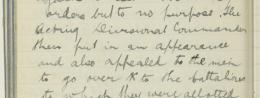 orders but to no purpose. The
Acting Divisional Commander
then put in an appearance
and also appealed to the men
to go over to the battalions
to which they were allotted